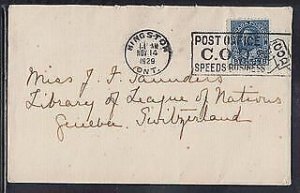 KINGSTON
NOV 14
1929
ONT.
POST OFFICE
C.O.D.
SPEEDS BUSINESS
Miss J. F. Saunders
Library of League of Nations
Geneva, Switzerland